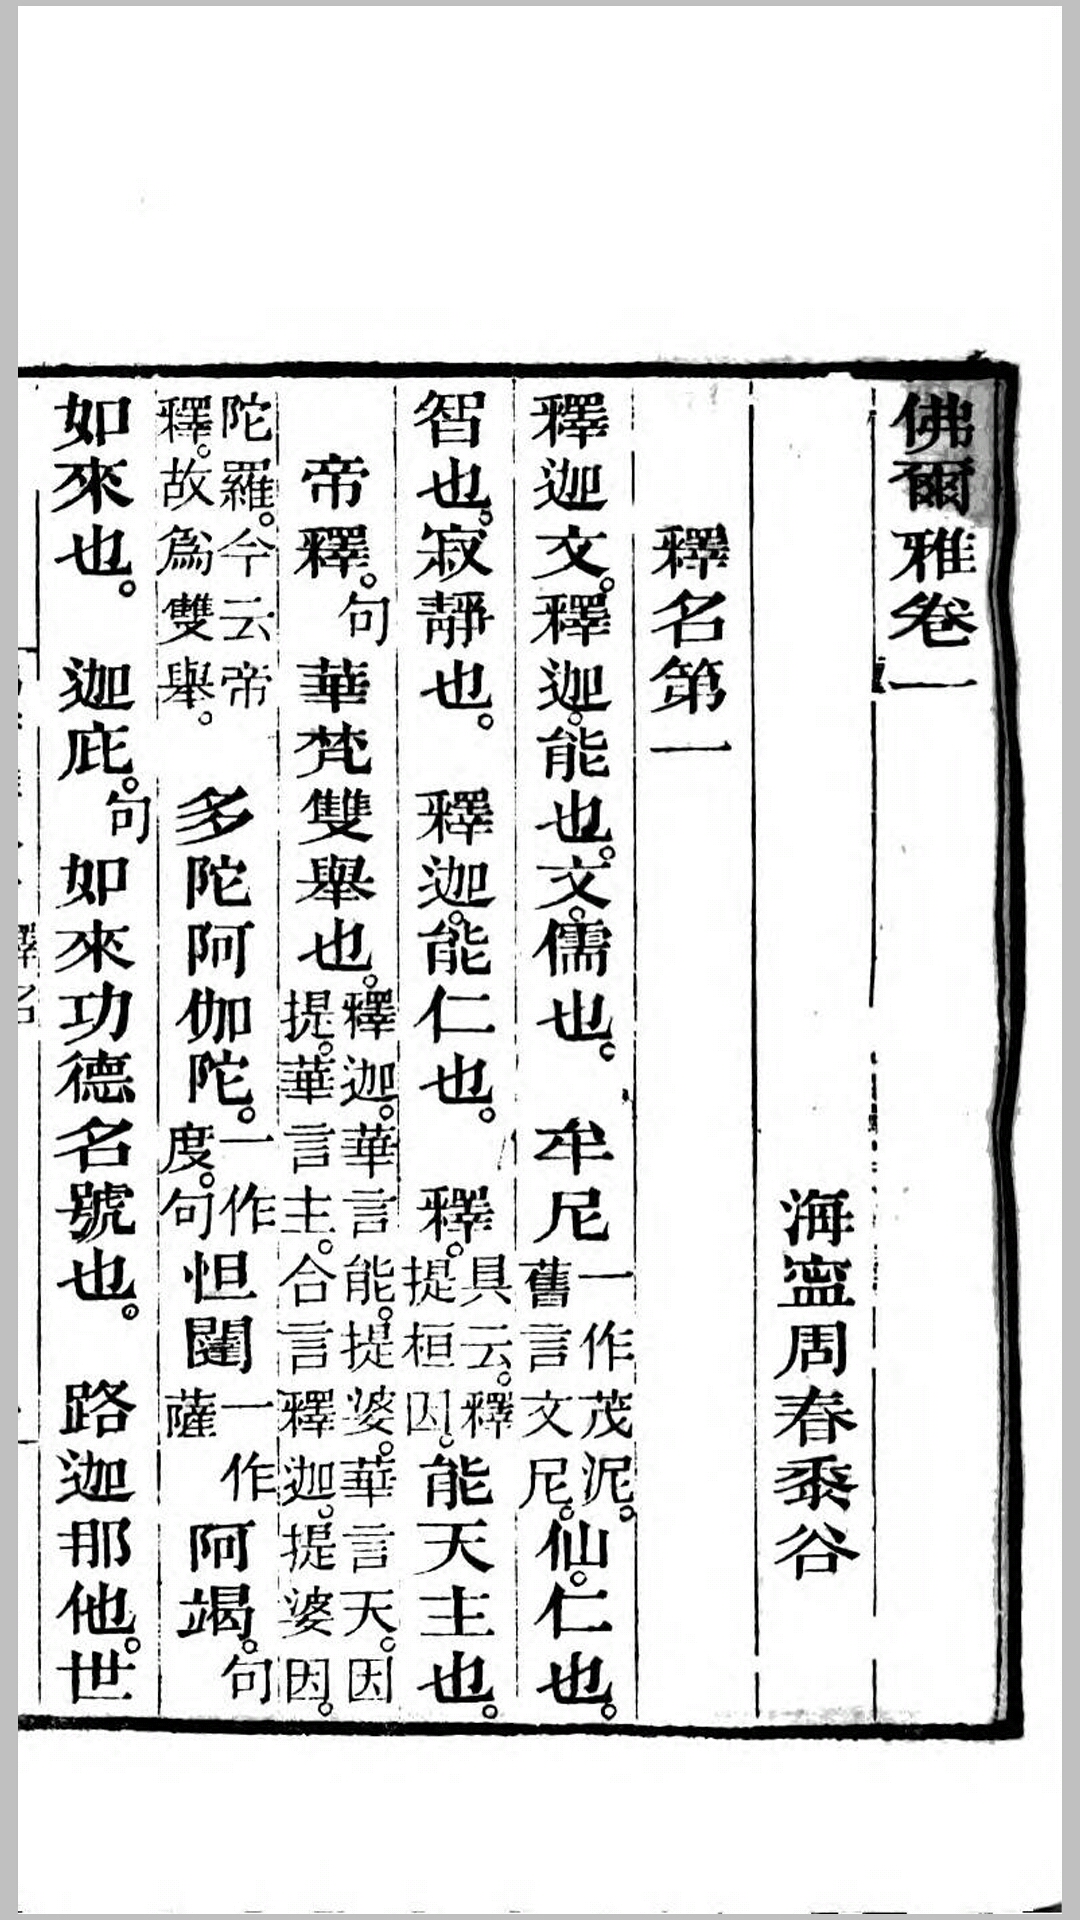 佛爾雅卷一
海寧周春黍谷
釋名第一
釋迦文。釋迦。能也。文。儒也。 牟尼一作茂泥。舊言文尼。仙。仁也。
智也。寂靜也。 釋迦。能仁也。 釋。具云。釋提桓因。能天主也。
帝釋。句華梵雙舉也。釋迦。華言能。提婆。華言天。因提。華言主。合言釋迦。提婆因。
陀羅。今云帝釋。故爲雙舉。 多陀阿伽陀。一作度。句怛闥一作薩阿竭。句
如來也。 迦庇。句如來功德名號也。 路迦那他。世